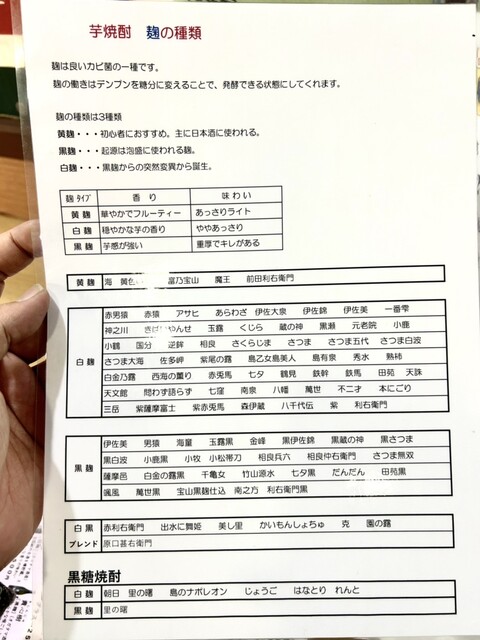 芋焼酎 麹の種類
麹は良いカビ菌の一種です。
麹の働きはデンプンを糖分に変えることで、発酵できる状態にしてくれます。
麹の種類は3種類
黄麹・・・初心者におすすめ。主に日本酒に使われる。
黒麹・・・起源は泡盛に使われる麹。
白麹・・・黒麹からの突然変異から誕生。
麹タイプ 香り 味わい
黄麹 華やかでフルーティー あっさりライト
白麹 穏やかな芋の香り ややあっさり
黒麹 芋感が強い 重厚でキレがある
黄麹 海 黄色 富乃宝山 魔王 前田利右衛門
白麹
赤男猿 赤猿 アサヒ あらわざ 伊佐大泉 伊佐錦 伊佐美 一番雫
神之川 きばいやんせ 玉露 くじら 蔵の神 黒瀬 元老院 小鹿
小鶴 国分 逆鉾 相良 さくらじま さつま さつま五代 さつま白波
さつま大海 佐多岬 紫尾の露 島乙女島美人 島有泉 秀水 熟柿
白金乃露 西海の薫り 赤兎馬 七夕 鶴見 鉄幹 鉄馬 田苑 天誅
天文館 問わず語らず 七窪 南泉 八幡 萬世 不二才 本にごり
三岳 紫薩摩富士 紫赤兎馬 森伊蔵 八千代伝 紫 利右衛門
黒麹
伊佐美 男猿 海童 玉露黒 金峰 黒伊佐錦 黒蔵の神 黒さつま
黒白波 小鹿黒 小牧 小松帯刀 相良兵六 相良仲右衛門 さつま無双
薩摩邑 白金の露黒 千亀女 竹山源水 七夕黒 だんだん 田苑黒
颯風 萬世黒 宝山黒麹仕込 南之方 利右衛門黒
白黒ブレンド
赤利右衛門 出水に舞姫 美し里 かいもんしょちゅ 克 園の露
原口甚右衛門
黒糖焼酎
白麹 朝日 里の曙 島のナポレオン じょうご はなとり れんと
黒麹 里の曙